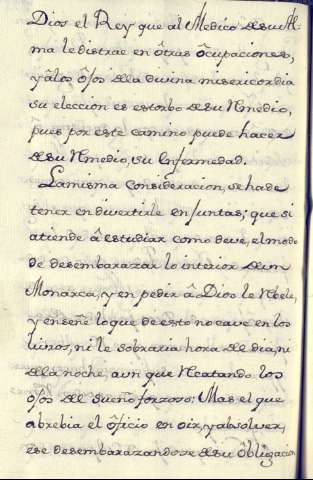 Dios el Rey que al Medico de su Al-
ma le distrae en ôtras ôcupaciones,
y â los ôjos de la divina misericordia
su eleccion es estorbo de su Remedio,
pues por este camino puede hacer
de su Remedio, su Enfermedad.
La misma consideracion, se ha de
tener en divertirle en Juntas; que si
atiende â estudiar como deve, el modo
de desembarazar lo interior de un
Monarca, y en pedir â Dios le Rebele,
y enseñe lo que de esto no cave en los
Libros, ni le sobraria hora del dia, ni
de la noche, aun que Recatando los
ojos del sueño forzoso: Mas el que
abrebia el ôficio en oir, y absolver,
ese desembarazandose de su ôbligacion